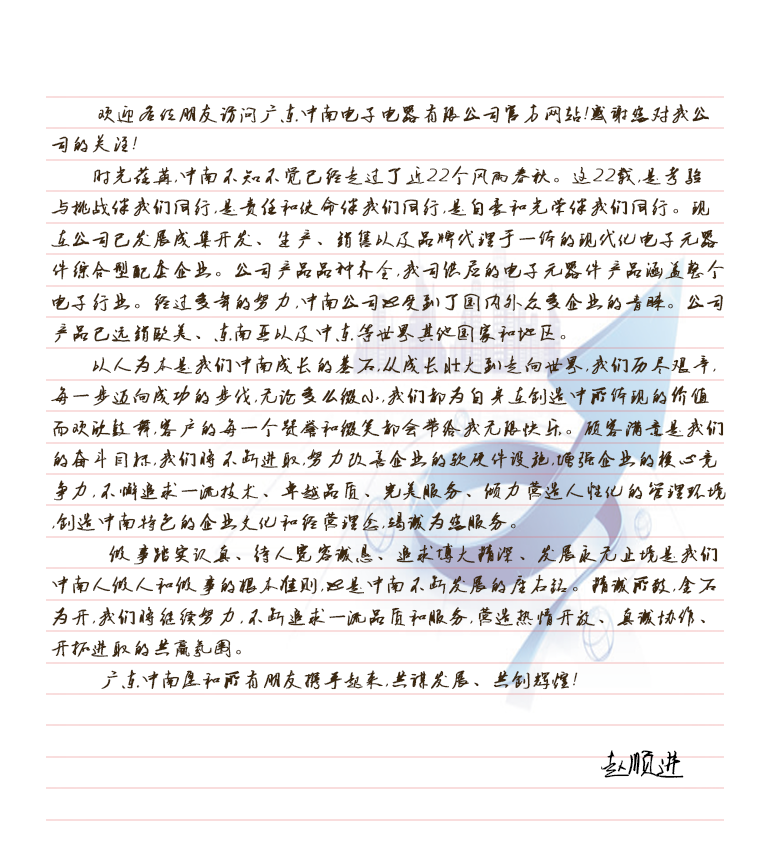 欢迎各位朋友访问广东中南电子电器有限公司官方网站!感谢您对我公
司的关注!
时光荏苒,中南不知不觉已经走过了近22个风雨春秋。这22载,是考验
与挑战伴我们同行,是责任和使命伴我们同行,是自豪和光荣伴我们同行。现
在公司已发展成集开发、生产、销售以及品牌代理于一体的现代化电子元器
件综合型配套企业。公司产品品种齐全,我司供应的电子元器件产品涵盖整个
电子行业。经过多年的努力,中南公司也受到了国内外众多企业的青睐。公司
产品已远销欧美、东南亚以及中东等世界其他国家和地区。
以人为本是我们中南成长的基石,从成长壮大到走向世界,我们历尽艰辛,
每一步迈向成功的步伐,无论多么微小,我们都为自身在创造中所体现的价值
而欢欣鼓舞,客户的每一个赞誉和微笑都会带给我无限快乐。顾客满意是我们
的奋斗目标,我们将不断进取,努力改善企业的软硬件设施,增强企业的核心竞
争力,不懈追求一流技术、卓越品质、完美服务、倾力营造人性化的管理环境
,创造中南特色的企业文化和经营理念,竭诚为您服务。
做事踏实认真、待人宽容诚恳、追求博大精深、发展永无止境是我们
中南人做人和做事的根本准则,也是中南不断发展的座右铭。精诚所致,金石
为开,我们将继续努力,不断追求一流品质和服务,营造热情开放、真诚协作、
开拓进取的共赢氛围。
广东中南愿和所有朋友携手起来,共谋发展、共创辉煌!
赵顺进